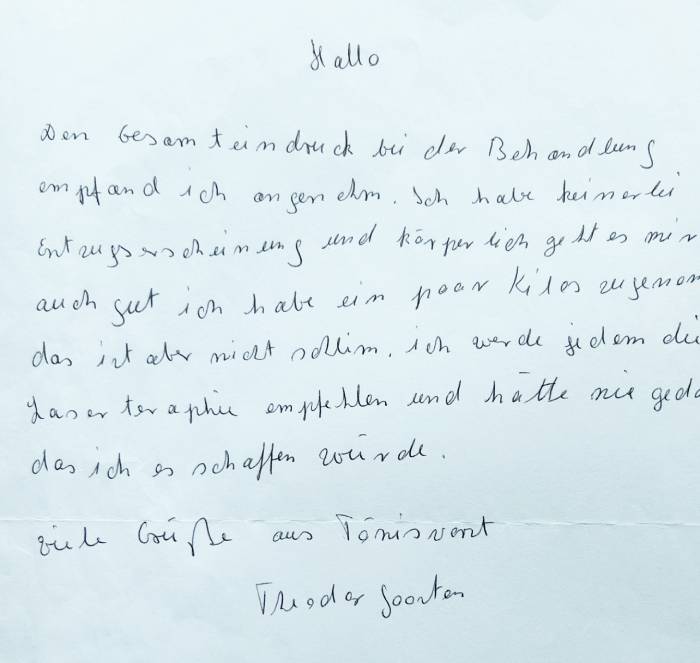 Hallo
Den Gesamteindruck bei der Behandlung
empfand ich angenehm. Ich habe keinerlei
Entzugserscheinung und körperlich geht es mir
auch gut ich habe ein paar Kilos zugenom
das ist aber nicht schlim. ich werde jedem die
Laserteraphie empfehlen und hätte nie geda
das ich es schaffen würde.
viele Grüße aus Tönisvorst
Theodor